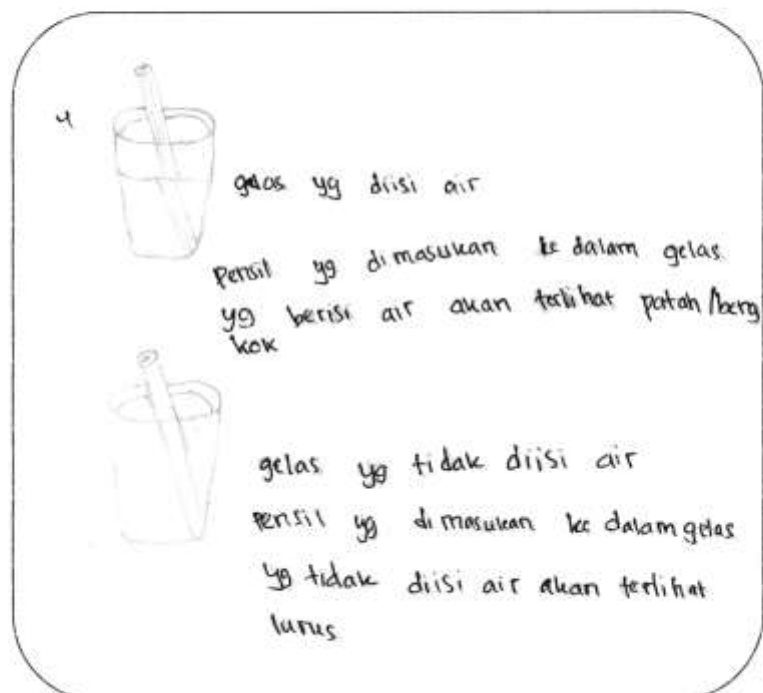 4
gelas yg diisi air
pensil yg dimasukan ke dalam gelas
yg berisi air akan terlihat patah/beng
kok
gelas yg tidak diisi air
pensil yg dimasukan ke dalam gelas
yg tidak diisi air akan terlihat
lurus